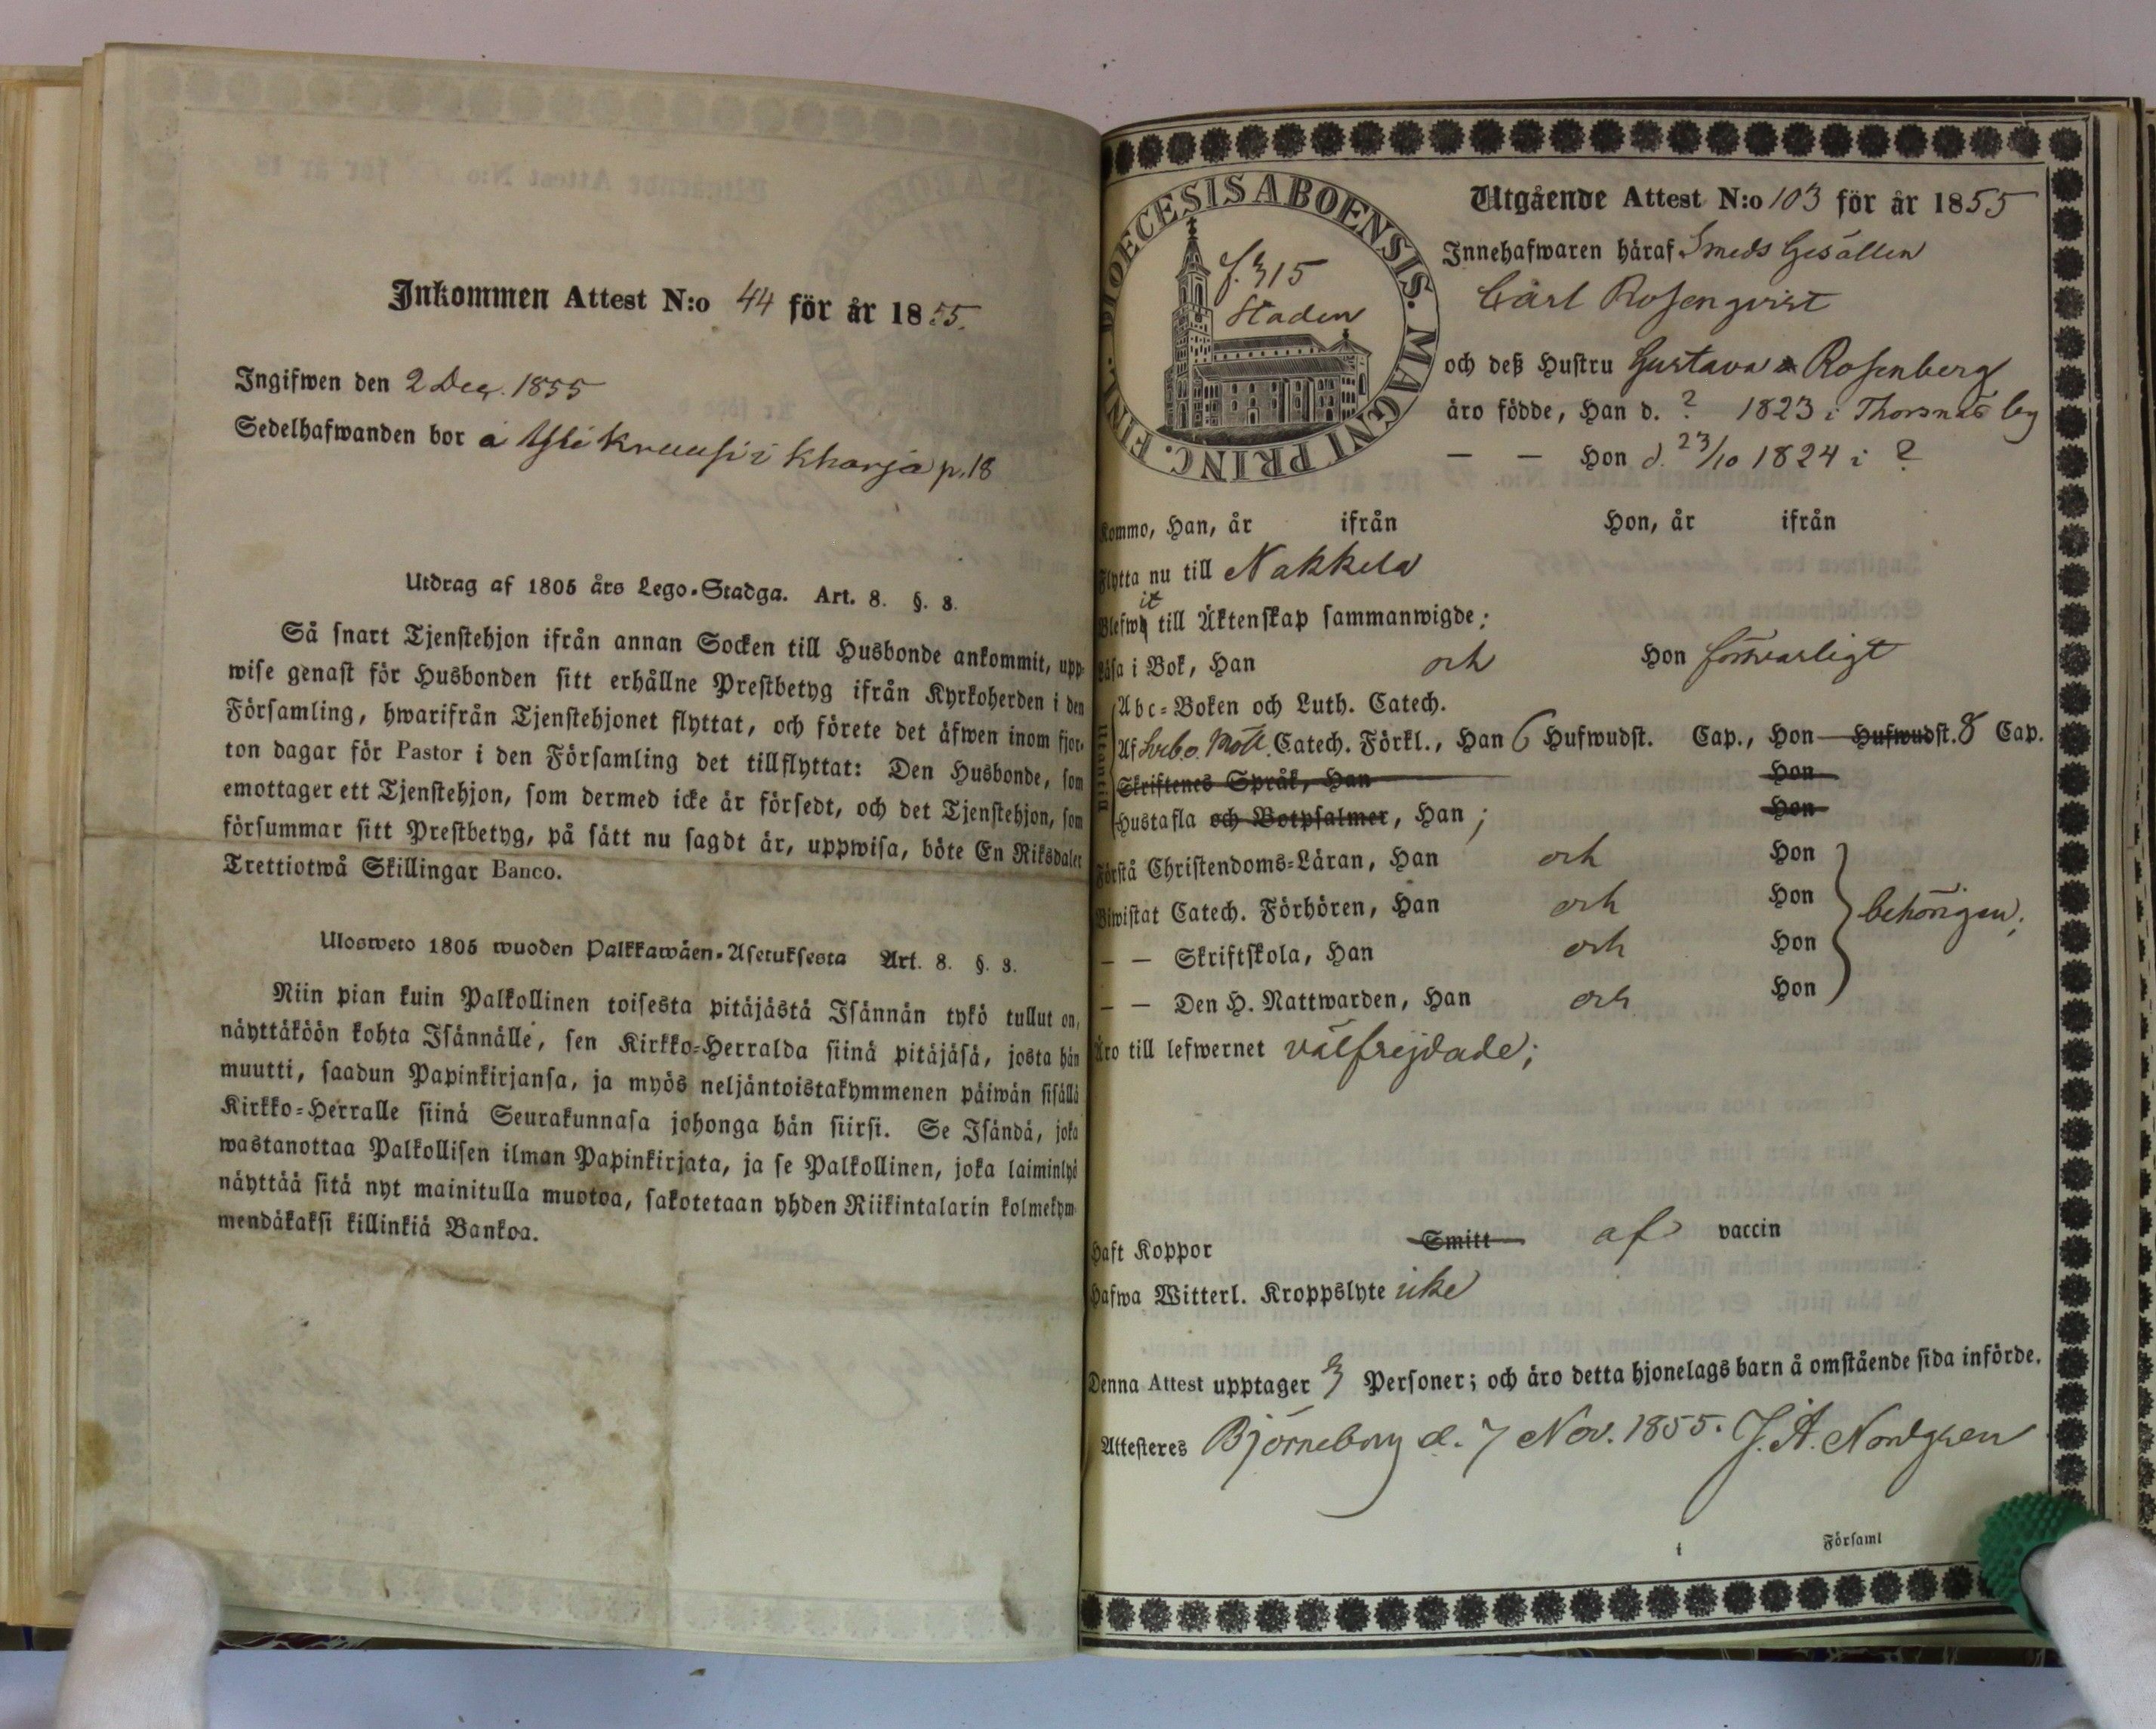 Inkommen Attest N:o 44 för år 1855.
Ingifwen den 2 Dec. 1855
Sedelhafwanden bor å i Kharja p. 18
Utdrag af 1805 års Lego-Stadga. Art. 8. §. 3.
Så snart Tjenstehjon ifrån annan Socken till Husbonde ankommit, upp-
wise genast för Husbonden sitt erhållne Prestbetyg ifrån Kyrkoherden i den
Församling, hwarifrån Tjenstehjonet flyttat, och förete det äfwen inom fjor-
ton dagar för Pastor i den Församling det tillflyttat: Den Husbonde, som
emottager ett Tjenstehjon, som dermed icke är försedt, och det Tjenstehjon, som
försummar sitt Prestbetyg, på sätt nu sagdt är, uppwisa, böte En Riksdaler
Trettiotwå Skillingar Banco.
Ulosweto 1805 wuoden Palkkawäen-Asetuksesta Art. 8. §. 3.
Niin pian kuin Palkollinen toisesta pitäjästä Isännän tykö tullut on,
näyttäköön kohta Isännälle, sen Kirkko-Herralda siinä pitäjäsä, josta hän
muutti, saadun Papinkirjansa, ja myös neljäntoistakymmenen päiwän sisällä
Kirkko-Herralle siinä Seurakunnasa johonga hän siirsi. Se Isändä, joka
wastanottaa Palkollisen ilman Papinkirjata, ja se Palkollinen, joka laiminlyö
näyttää sitä nyt mainitulla muotoa, sakotetaan yhden Riikintalarin kolmekym-
mendäkaksi killinkiä Bankoa.
DIOECESIS ABOENSIS. MAGNI PRINC. FINL.
f. 315
Staden
Utgående Attest N:o 103 för år 1855
Innehafwaren häraf Smeds Gesällen
Carl Rosenqvist
och deß Hustru Gustava Rosenberg
äro födde, Han d. ? 1823 i Thorsnäs by
— — Hon d. 23/10 1824 i ?
Kommo, Han, år ifrån Hon, år ifrån
Flytta nu till Nakkila
Blefwit till Äktenskap sammanwigde;
Läsa i Bok, Han och Hon försvarligt
Abc-Boken och Luth. Catech.
Af Sveb. o. Möll. Catech. Förkl., Han 6 Hufwudst. Cap., Hon Hufwudst. 8 Cap.
Skriftenes Språk, Han Hon
Hustafla och Botpsalmer, Han; Hon
Förstå Christendoms-Läran, Han och Hon
Biwistat Catech. Förhören, Han och Hon behörigen;
— — Skriftskola, Han och Hon
— — Den H. Nattwarden, Han och Hon
Äro till lefwernet välfrejdade;
Haft Koppor Smitt af vaccin
Hafwa Witterl. Kroppslyte icke
Denna Attest upptager 3 Personer; och äro detta hjonelags barn å omstående sida införde.
Attesteres Björneborg d. 7 Nov. 1855. J. A. Nordgren
i Församl